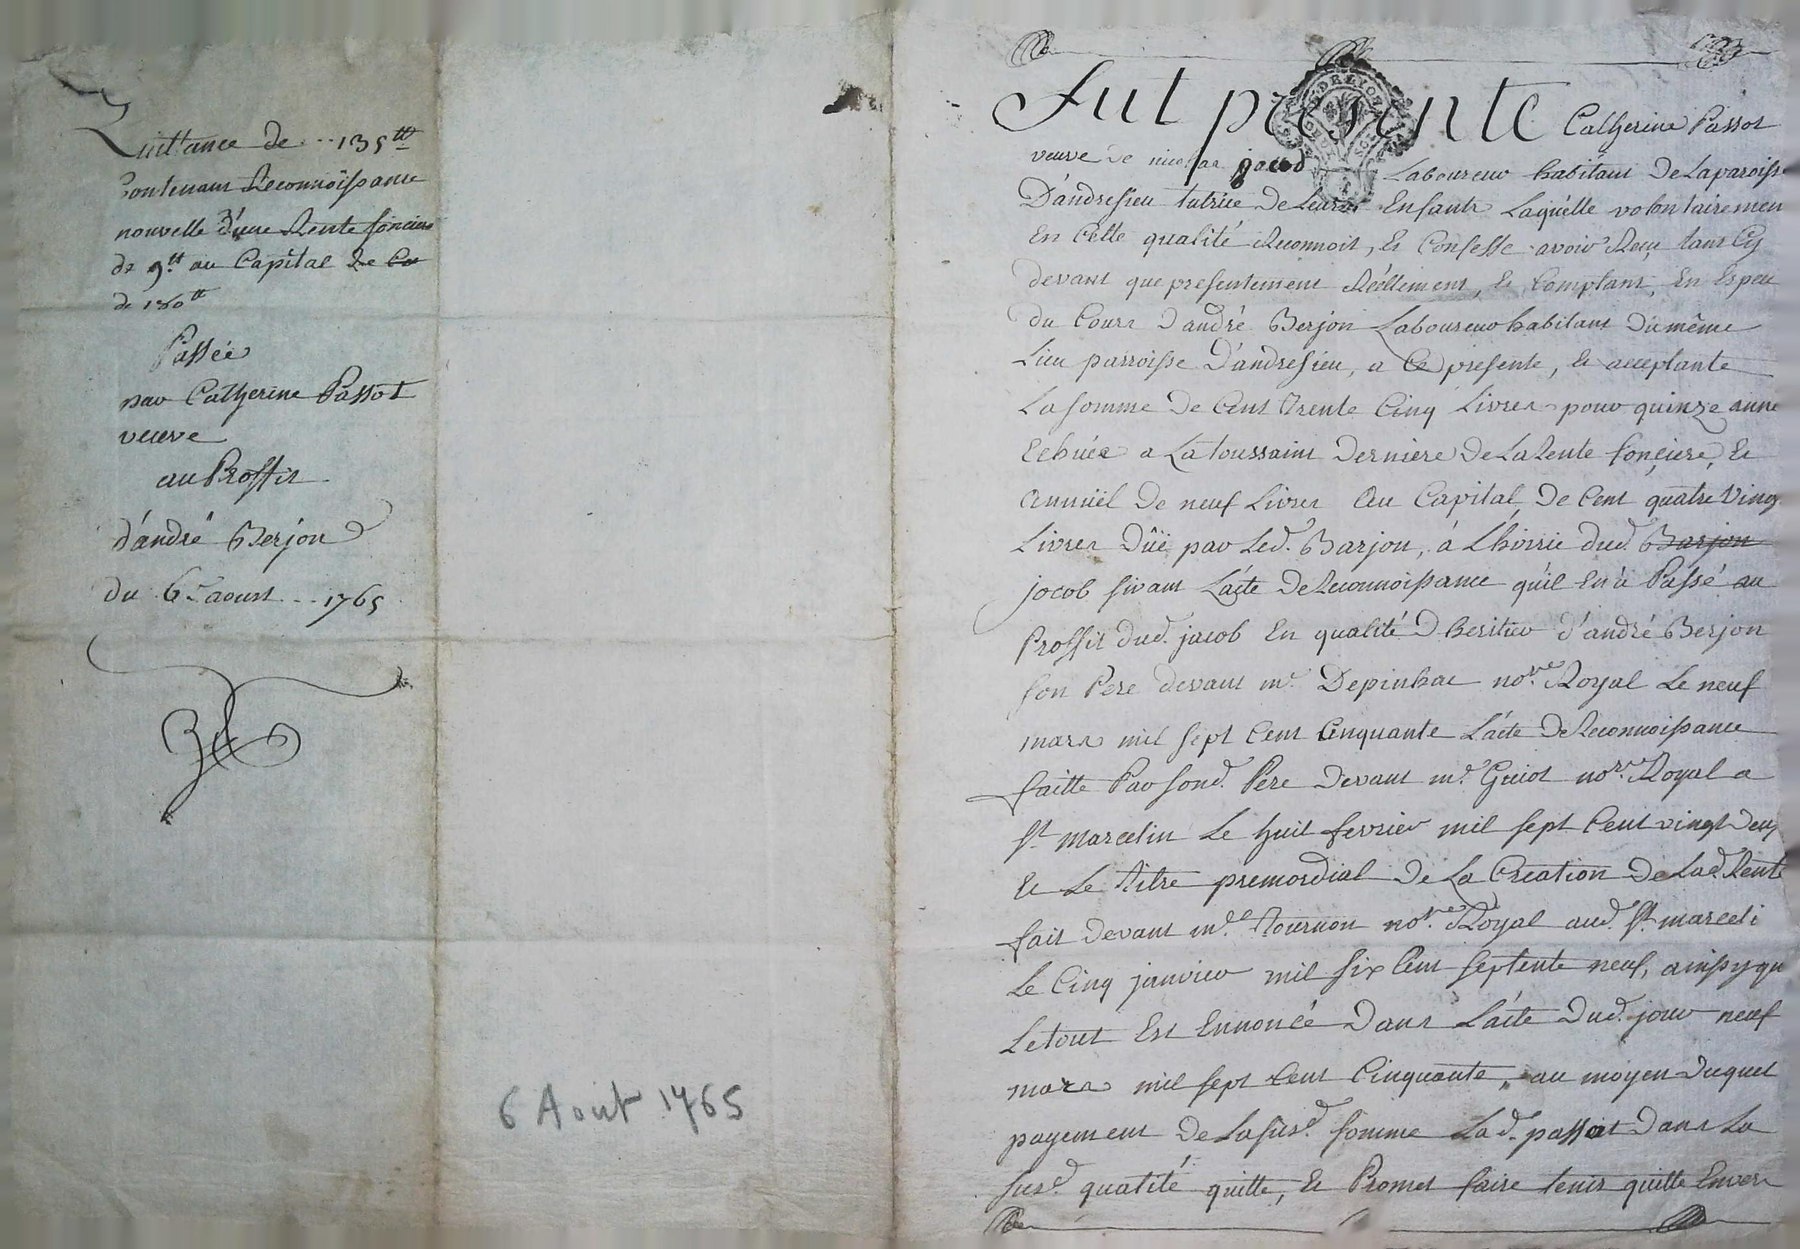 Quittance de .. 135 tt
Contenant Reconnoissance
nouvelle d'une Rente fonciere
de 9 tt au Capital
de 180 tt
Passée
par Catherine Passot
veuve
au Proffit
d'andré Berjon
du 6e aoust .. 1765
6 Aout 1765
Fut presente Catherine Passot
veuve de nicolas jacob Laboureur habitant De Laparoisse
D'andresieu tutrice De Leurs Enfants Laquelle volontairemen
En Cette qualité Reconnoit, et Confesse avoir Reçu tant Cy
devant que presentement Réellement, et Comptant, En Espece
du Cours D'andré Berjon Laboureur habitant Du même
Lieu parroisse D'andresieu, a Ce presente, et acceptante
La somme De Cent Trente Cinq Livres pour quinze anné
Echuée a La toussaint Derniere De La Rente fonçiere, et
annuël De neuf Livres Au Capital De Cent quatre Ving
Livres Dûë par Led. Barjon, á L'hoirie dud. Barjon
jocob sivant L'acte De Reconnoissance qu'il En à Passé au
Proffit dud. jacob En qualité D'heritier d'andré Berjon
son Pere devant me. Depinhac nore. Royal Le neuf
mars mil sept Cent Cinquante L'acte De Reconnoissance
faitte Par sond. Pere Devant me. Guiot nore. Royal a
St. marcelin Le huit fevrier mil sept Cent vingt deux
et Le Titre premordial De La Creation De Lad. Rente
fait Devant me. Tournon nore. Royal aud. St. marceli
Le Cinq janvier mil six Cent septente neuf, ainsy qu
Le tout Est Ennoncé Dans L'acte Dud. jour neuf
mars mil sept Cent Cinquante, au moyen Duquel
payement De La susd. somme La d. passot Dans La
susd. qualité quitte, et Promet faire tenir quitte Enver